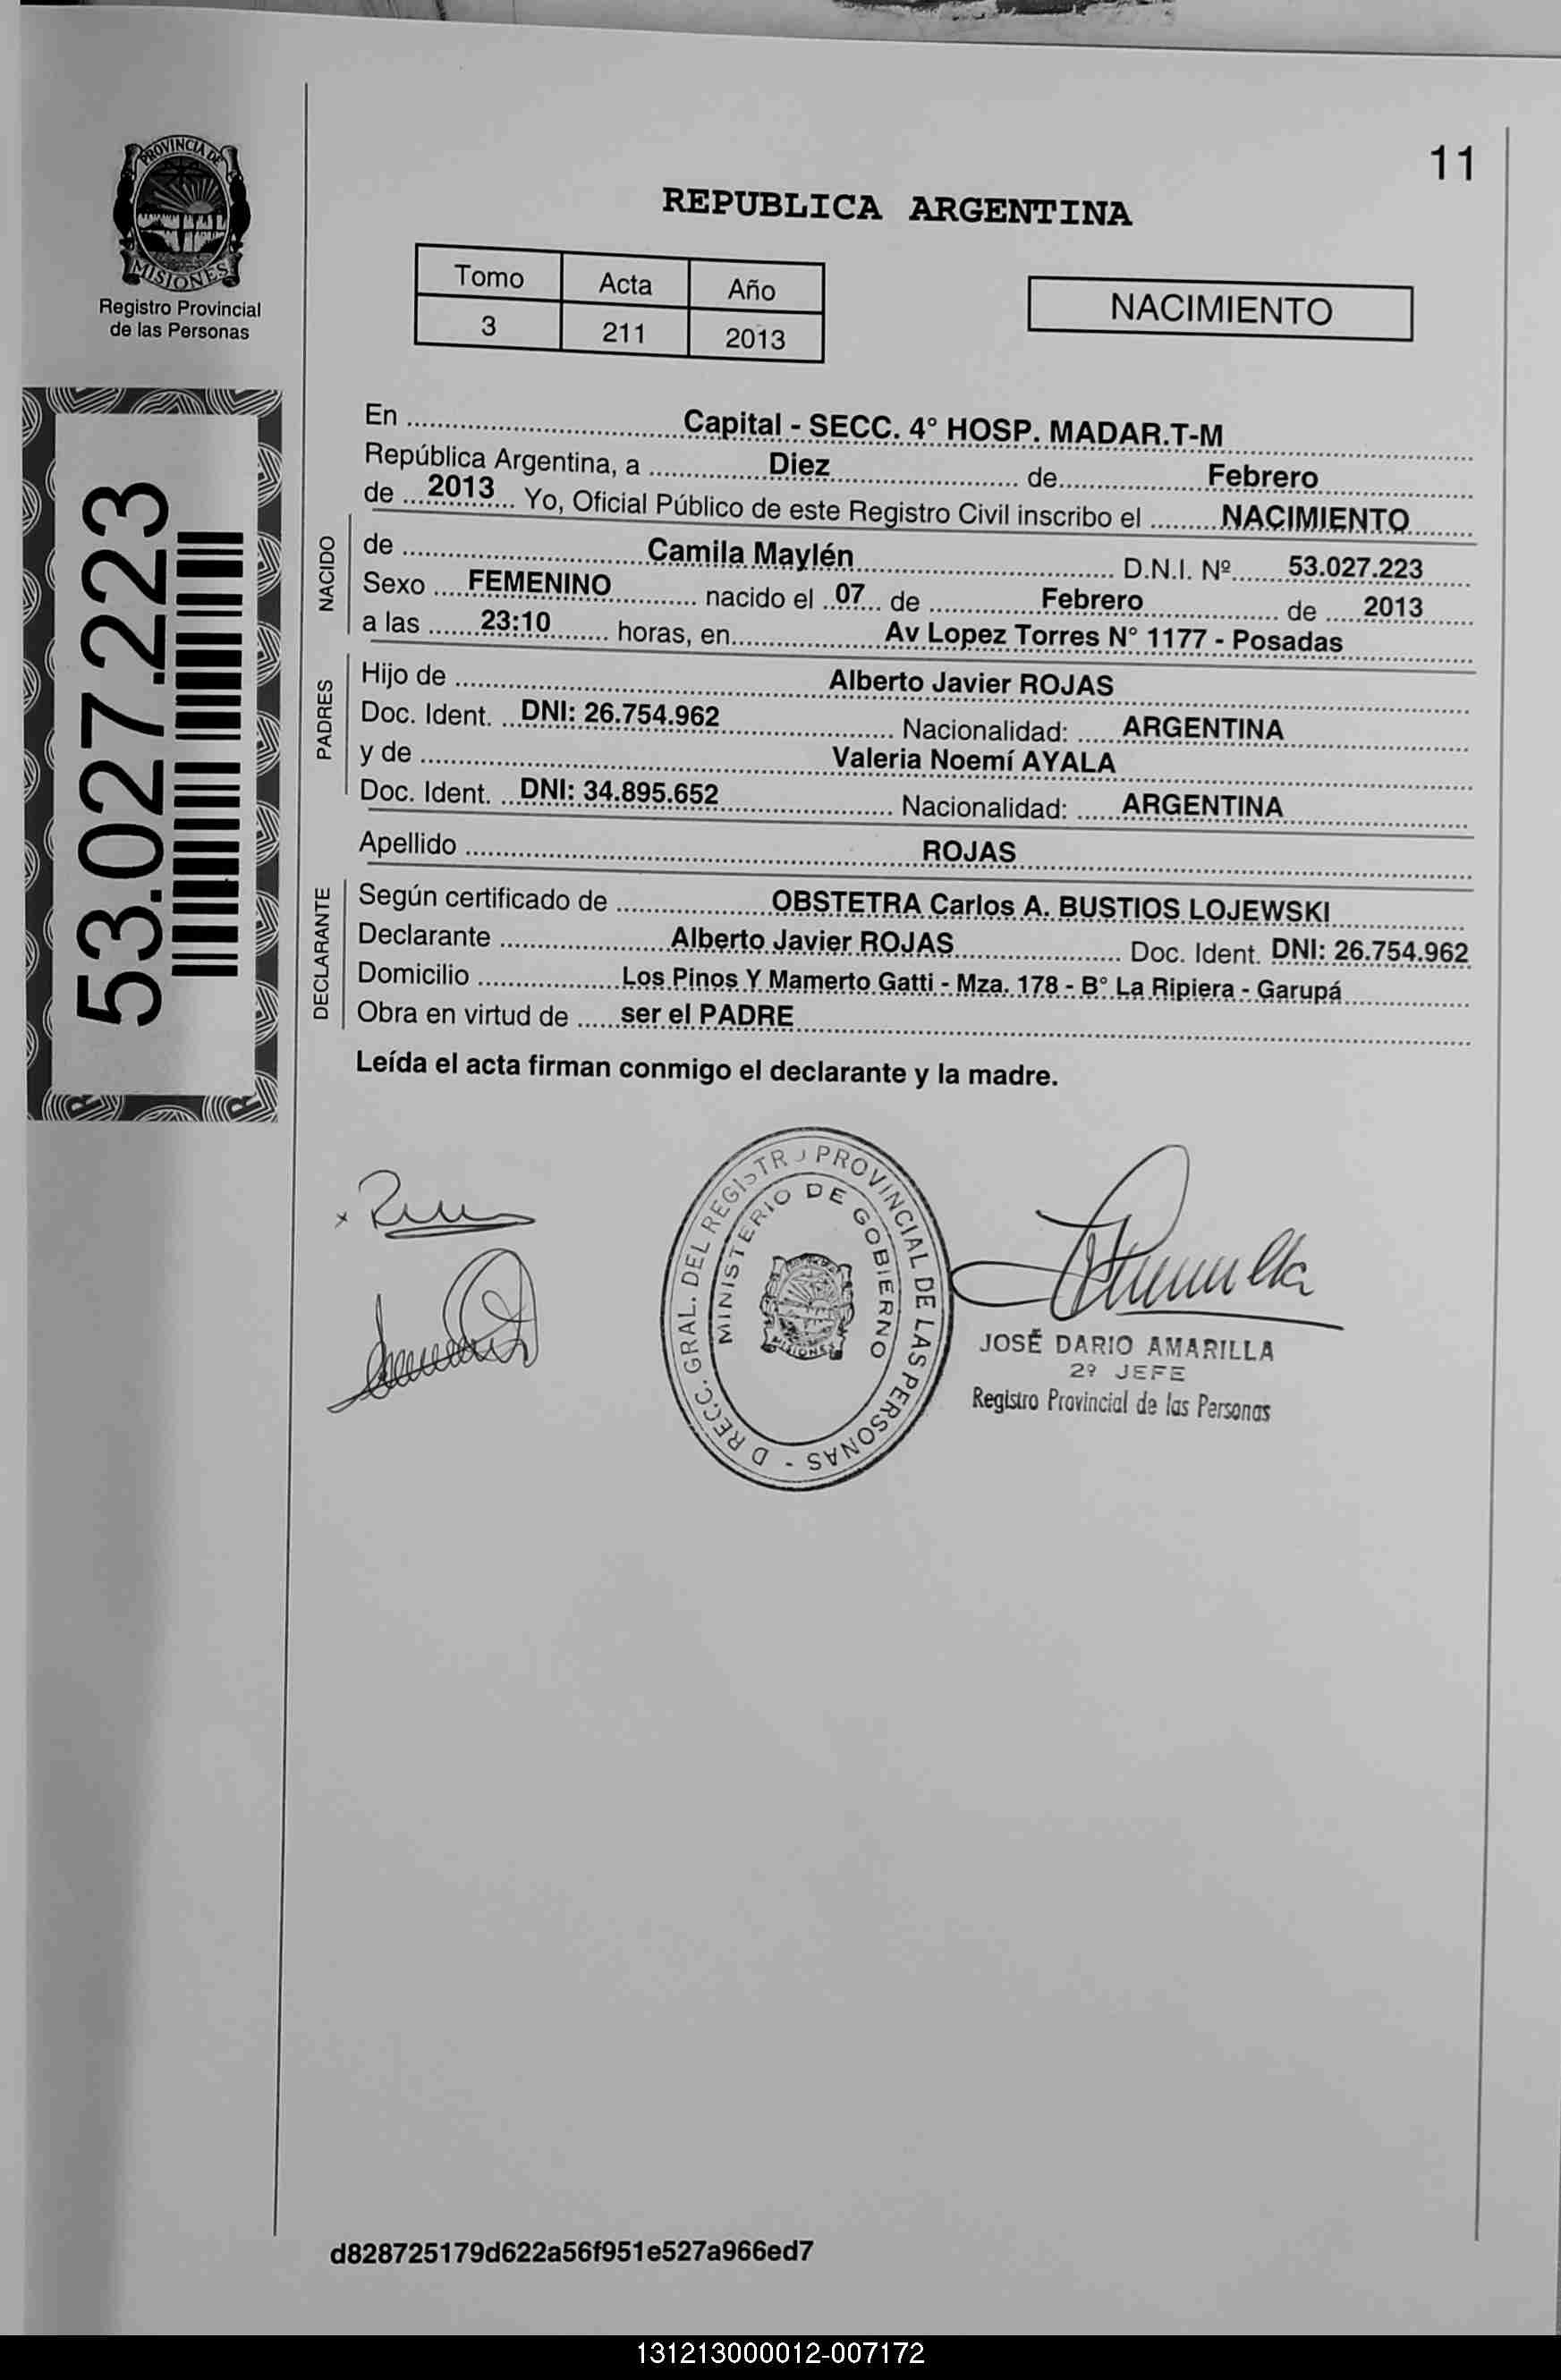 PROVINCIA DE
MISIONES
Registro Provincial
de las Personas
11
REPUBLICA ARGENTINA
Tomo Acta Año
3 211 2013
NACIMIENTO
53.027.223
En Capital - SECC. 4° HOSP. MADAR.T-M
República Argentina, a Diez de Febrero
de 2013 Yo, Oficial Público de este Registro Civil inscribo el NACIMIENTO
NACIDO
de Camila Maylén D.N.I. Nº 53.027.223
Sexo FEMENINO nacido el 07 de Febrero de 2013
a las 23:10 horas, en Av Lopez Torres N° 1177 - Posadas
PADRES
Hijo de Alberto Javier ROJAS
Doc. Ident. DNI: 26.754.962 Nacionalidad: ARGENTINA
y de Valeria Noemí AYALA
Doc. Ident. DNI: 34.895.652 Nacionalidad: ARGENTINA
Apellido ROJAS
DECLARANTE
Según certificado de OBSTETRA Carlos A. BUSTIOS LOJEWSKI
Declarante Alberto Javier ROJAS Doc. Ident. DNI: 26.754.962
Domicilio Los Pinos Y Mamerto Gatti - Mza. 178 - B° La Ripiera - Garupá
Obra en virtud de ser el PADRE
Leída el acta firman conmigo el declarante y la madre.
D RECC. GRAL. DEL REGISTRO PROVINCIAL DE LAS PERSONAS -
MINISTERIO DE GOBIERNO
MISIONES
JOSÉ DARIO AMARILLA
2º JEFE
Registro Provincial de las Personas
d828725179d622a56f951e527a966ed7
131213000012-007172